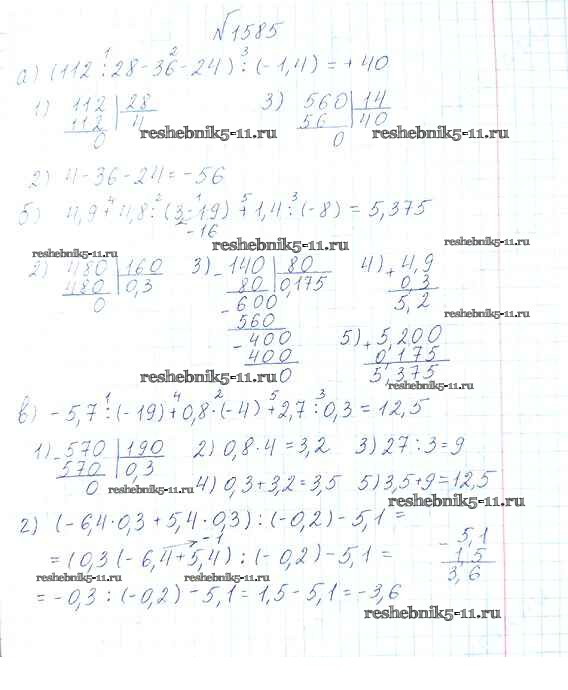 №1585
а) (112 : 28 - 36 - 24) : (-1,4) = +40
1) 112 | 28
112 | 4
0
reshebnik5-11.ru
3) 560 | 14
56 | 40
0
reshebnik5-11.ru
2) 4 - 36 - 24 = -56
б) 4,9 + 4,8 : (3 - 19) + 1,4 : (-8) = 5,375
-16
reshebnik5-11.ru
reshebnik5-11.ru
2) 480 | 160
480 | 0,3
0
3) - 140 | 80
80 | 0,175
- 600
560
- 400
400
0
4) + 4,9
0,3
5,2
reshebnik5-11.ru
5) + 5,200
0,175
5,375
reshebnik5-11.ru
в) -5,7 : (-19) + 0,8 · (-4) + 2,7 : 0,3 = 12,5
1) - 570 | 190
570 | 0,3
0
reshebnik5-11.ru
2) 0,8 · 4 = 3,2
3) 27 : 3 = 9
4) 0,3 + 3,2 = 3,5
5) 3,5 + 9 = 12,5
reshebnik5-11.ru
г) (-6,4 · 0,3 + 5,4 · 0,3) : (-0,2) - 5,1 =
-1
= (0,3 (-6,4 + 5,4) : (-0,2) - 5,1 =
- 5,1
1,5
3,6
reshebnik5-11.ru
reshebnik5-11.ru
= -0,3 : (-0,2) - 5,1 = 1,5 - 5,1 = -3,6
reshebnik5-11.ru